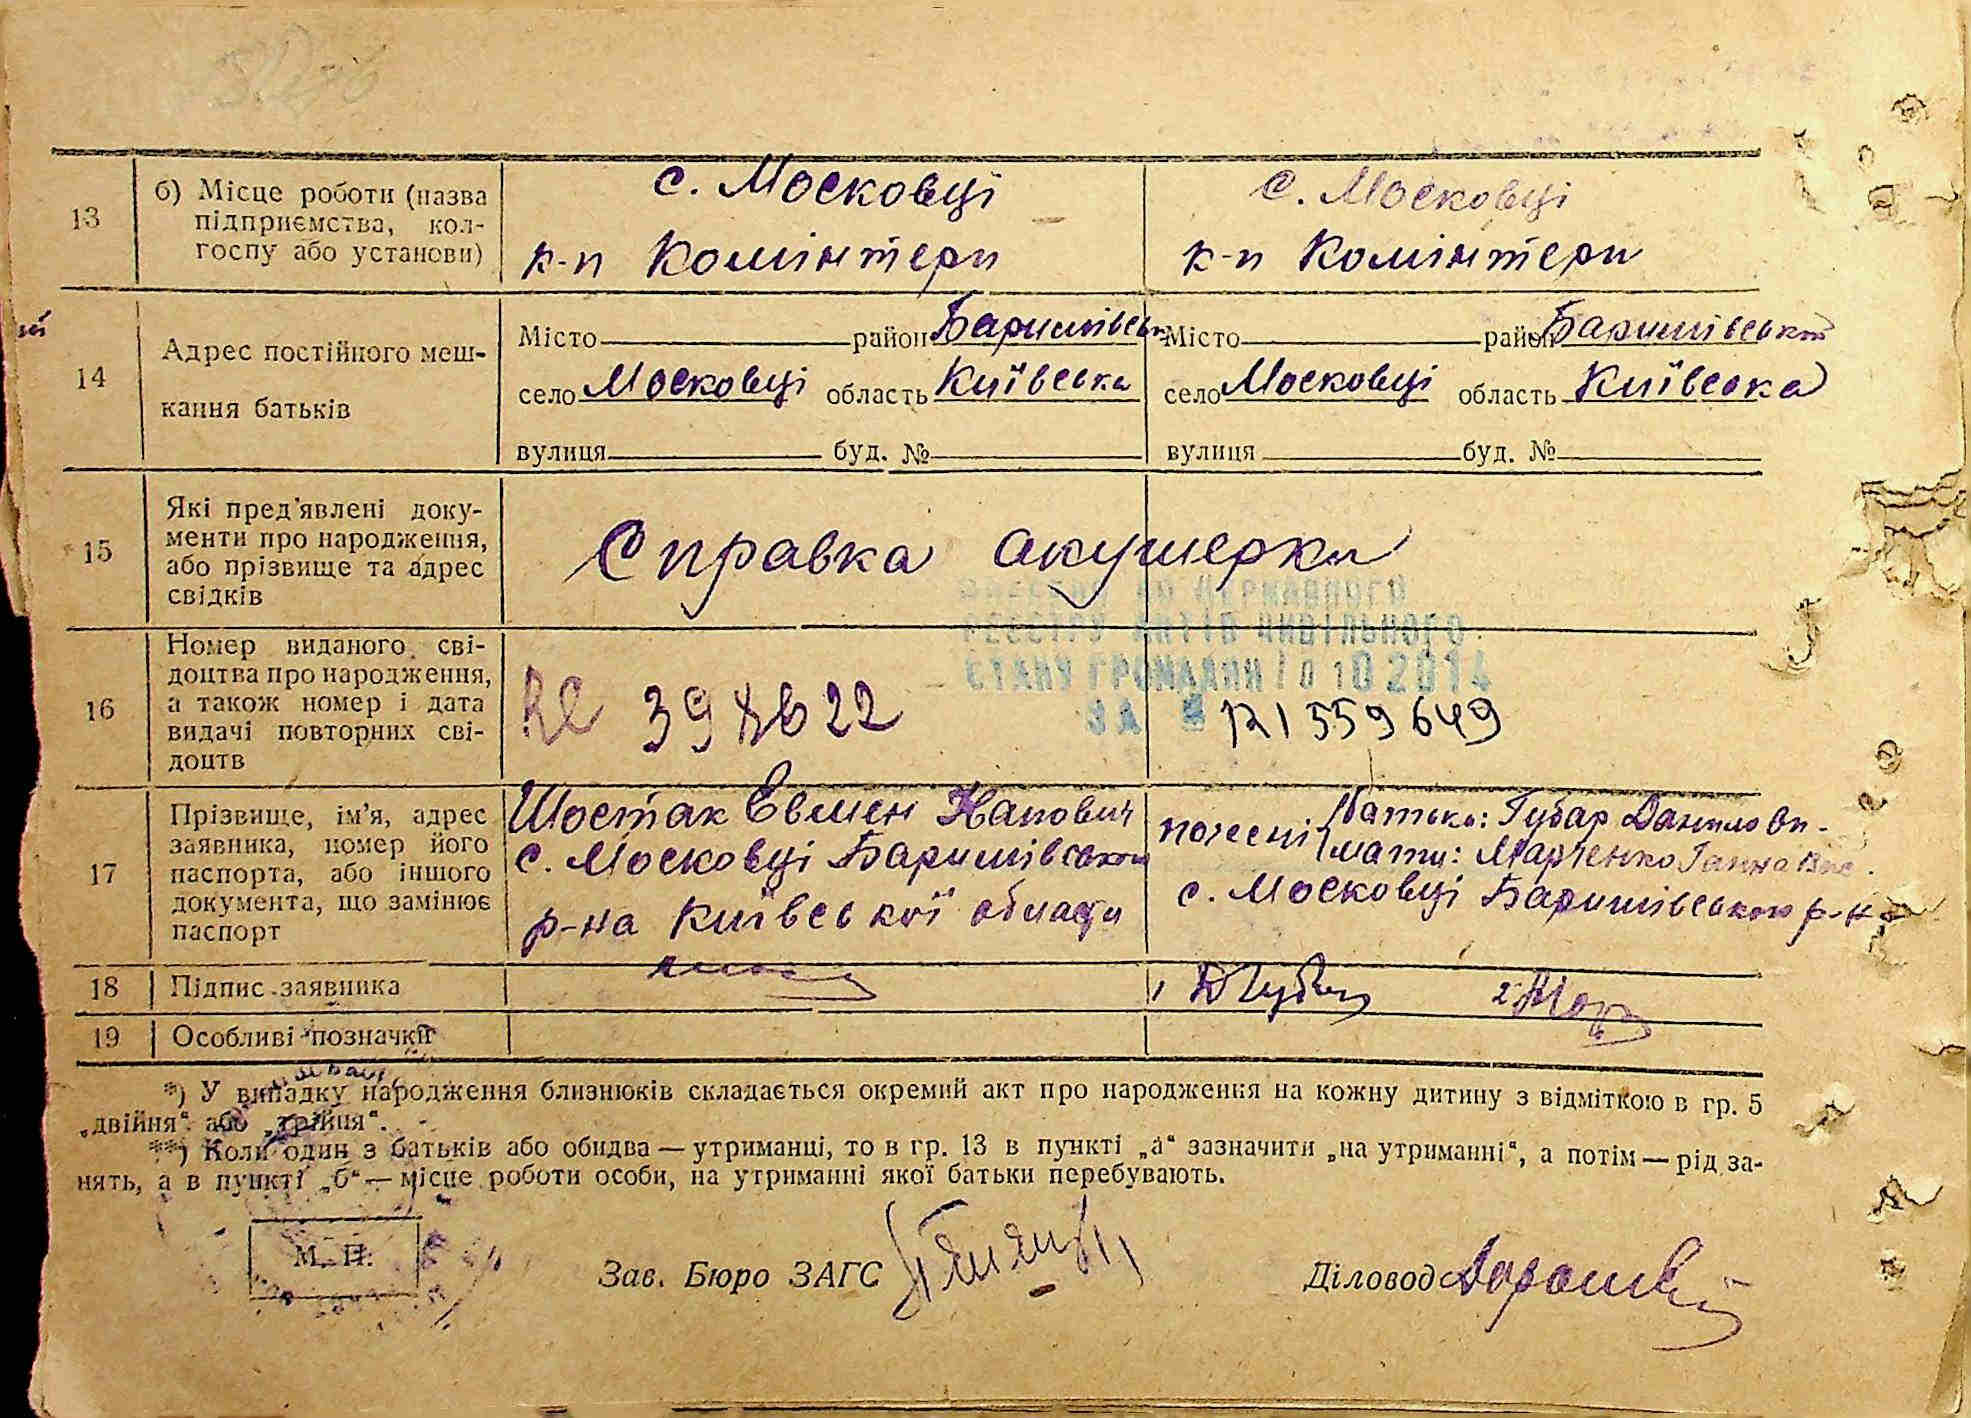 13
б) Місце роботи (назва
підприємства, кол-
госпу або установи)
с. Московці
к-п Комінтерн
с. Московці
к-п Комінтерн
14
Адрес постійного меш-
кання батьків
Місто район Баришівськ
село Московці область Київська
вулиця буд. №
Місто район Баришівський
село Московці область Київська
вулиця буд. №
15
Які пред'явлені доку-
менти про народження,
або прізвище та адрес
свідків
Справка акушерки
16
Номер виданого сві-
доцтва про народження,
а також номер і дата
видачі повторних сві-
доцтв
ДЕРЖАВНОГО
РЕЄСТРУ АКТІВ ЦИВІЛЬНОГО
СТАНУ ГРОМАДЯН 10 10 2014
ЗА № 121559649
17
Прізвище, ім'я, адрес
заявника, номер його
паспорта, або іншого
документа, що замінює
паспорт
Шостак Євмен
с. Московці Баришівськой
р-на Київської области
батько: Губар Данило
мати: Марченко Ганна
с. Московці Баришівського р-н
18
Підпис заявника
1
2
19
Особливі позначки
*) У випадку народження близнюків складається окремий акт про народження на кожну дитину з відміткою в гр. 5
„двійня“ або „трійня“.
**) Коли один з батьків або обидва — утриманці, то в гр. 13 в пункті „а“ зазначити „на утриманні“, а потім — рід за-
нять, а в пункті „б“ — місце роботи особи, на утриманні якої батьки перебувають.
М. П.
Зав. Бюро ЗАГС
Діловод